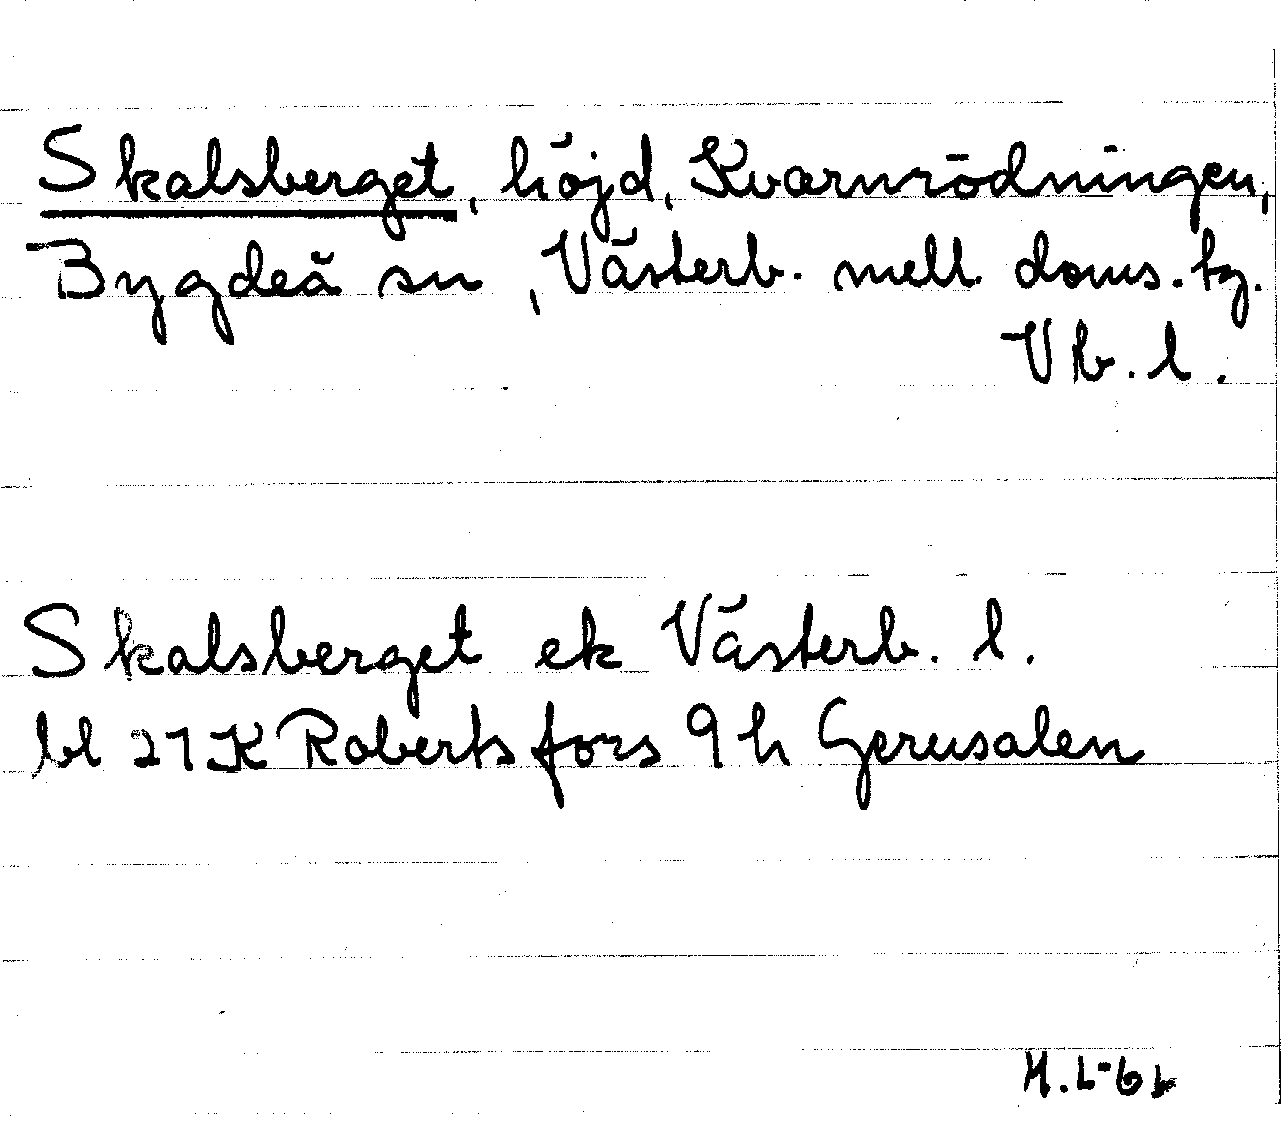 Skalsberget, höjd, Kvarnrödningen,
Bygdeå sn, Västerb. mell. doms. tg.
Vb. l.
Skalsberget ek Västerb. l.
bl 21K Robertsfors 9h Gerusalen